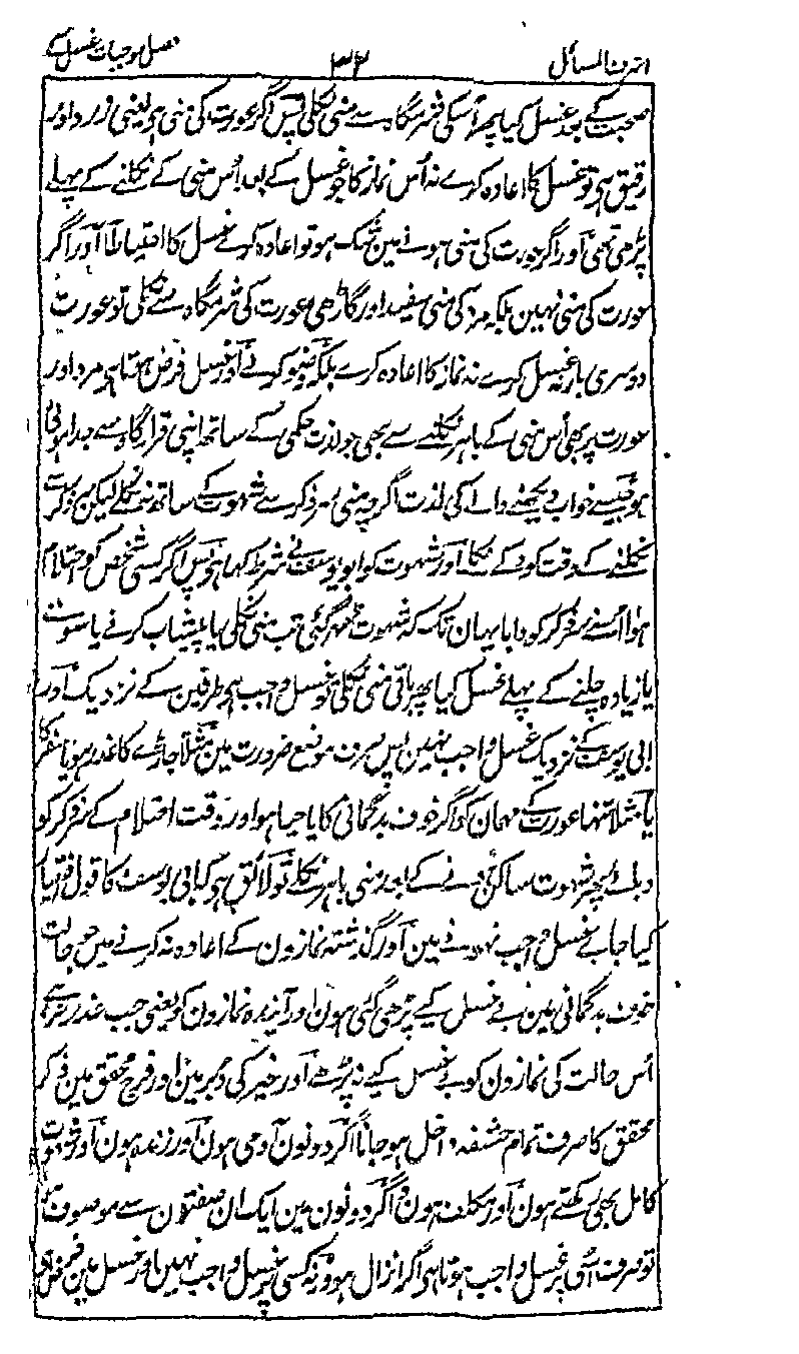 اشرف المسائل ۳۲ فصل موجبات غسل کے
صحبت کے بعد غسل کیا پھر اُسکی شرمگاہ سے منی نکلی پس اگر عورت کی منی ہو یعنی زرد اور
رقیق ہو تو غسل کا اعادہ کرے نہ اُس نماز کا جو غسل کے بعد اُس منی کے نکلنے کے پہلے
پڑھی تھی اور اگر عورت کی منی ہونے مین شک ہو تو اعادہ کرے غسل کا احتیاطاً اور اگر
عورت کی منی نہین بلکہ مرد کی منی سفید اور گاڑھی عورت کی شرمگاہ سے نکلی تو عورت
دوسری بار نہ غسل کرے نہ نماز کا اعادہ کرے بلکہ وضو کرے اور غسل فرض ہوتا ہی مرد اور
عورت پر بھی اُس منی کے باہر نکلنے سے بھی جو لذت حکمی کے ساتھ اپنی قرارگاہ سے جدا ہوئی
ہو جیسے خواب دیکھنے والے کی لذت اگرچہ منی سر ذکر سے شہوت کے ساتھ نہ نکلے لیکن سر ذکر سے
نکلنے کے وقت کود کے نکلے اور شہوت کو ابو یوسف نے شرط کہا ہو پس اگر کسی شخص کو احتلام
ہوا اُسنے سر ذکر کو دبایا یہان تک کہ شہوت ٹھہر گئی تب منی نکلی یا پیشاب کرنے یا سونے
یا زیادہ چلنے کے پہلے غسل کیا پھر باقی منی نکلی تو غسل واجب ہو طرفین کے نزدیک اور
ابی یوسف کے نزدیک غسل واجب نہین پس صرف موضع ضرورت مین مثلاً جاڑے کا عذر ہو یا سفر کا
یا مثلاً تنہا عورت کے مہمان کو اگر خوف بدگمانی کا یا حیا ہو اور وقت احتلام کے سر ذکر کو
دبائے پھر شہوت ساکن ہونے کے بعد منی باہر نکلے تو لائق ہو کہ ابی یوسف کا قول اختیار
کیا جاے غسل واجب نہونے مین اور گذشتہ نمازون کے اعادہ نہ کرنے مین جو حالت
خوف بدگمانی مین بے غسل کیے پڑھی گئی ہون اور آیندہ نمازون کو یعنی جب عذر نرہے
اُس حالت کی نمازون کو بے غسل کیے نہ پڑھے اور غیر کی دبر مین اور فرج محقق مین ذکر
محقق کا صرف تمام حشفہ داخل ہو جانا اگر دونون آدمی ہون اور زندہ ہون اور شہوت
کامل بھی رکھتے ہون اور مکلف ہون اگر دونون مین ایک ان صفتون سے موصوف ہو
تو صرف اُسی پر غسل واجب ہوتا ہی اگر انزال ہو ورنہ کسی پر غسل واجب نہین اور غسل مین فرض ہی